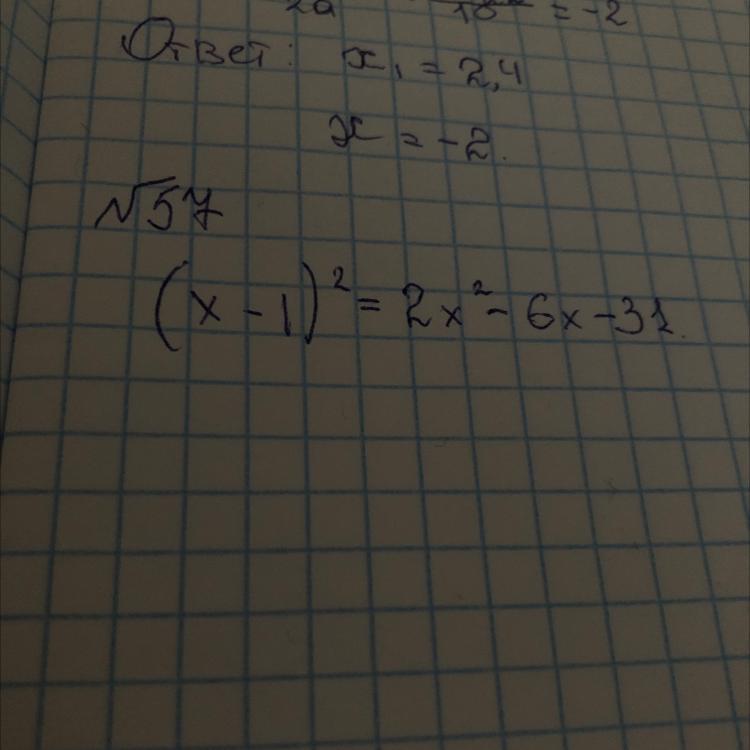 2a 10 = -2
Ответ: x₁ = 2,4
x = -2.
№57
(x - 1)² = 2x² - 6x - 31.